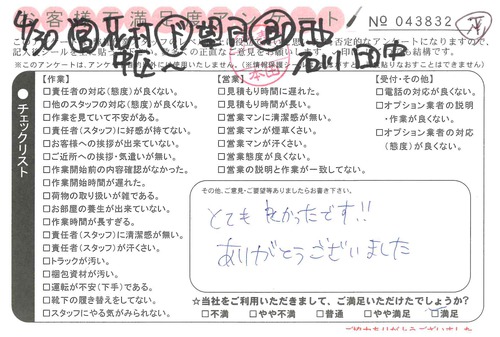 お客様満足度
ト
№ 043832
4/30
本田
田中
記入後シールをはがして
※このアンケートは、アンケート
チェックリスト
【作業】
□責任者の対応(態度)が良くない。
□他のスタッフの対応(態度)が良くない。
□作業を見ていて不安がある。
□責任者(スタッフ)に好感が持てない。
□お客様への挨拶が出来ていない。
□ご近所への挨拶・気遣いが無い。
□作業開始前の内容確認がなかった。
□作業開始時間が遅れた。
□荷物の取り扱いが雑である。
□お部屋の養生が出来ていない。
□作業時間が長すぎる。
□責任者(スタッフ)に清潔感が無い。
□責任者(スタッフ)が汗くさい。
□トラックが汚い。
□梱包資材が汚い。
□運転が不安(下手)である。
□靴下の履き替えをしてない。
□スタッフにやる気がみられない。
【営業】
□見積もり時間に遅れた。
□見積もり時間が長い。
□営業マンに清潔感が無い。
□営業マンが煙草くさい。
□営業マンが汗くさい。
□営業態度が良くない。
□営業の説明と作業が一致してない。
【受付・その他】
□電話の対応が良くない。
□オプション業者の説明
・作業が良くない。
□オプション業者の対応
(態度)が良くない。
その他、ご意見・ご要望等ありましたらお書き下さい。
とても良かったです!!
ありがとうございました
☆当社をご利用いただきまして、ご満足いただけたでしょうか?
□不満 □やや不満 □普通 □やや満足 □満足
ご協力ありがとうございました